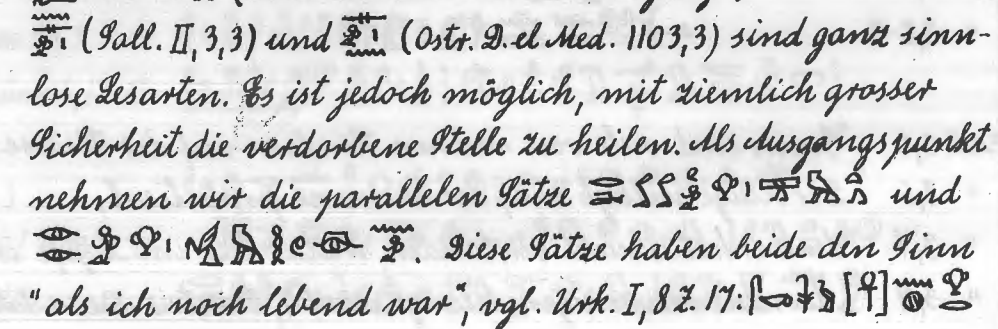 (Sall. II, 3,3) und (Ostr. D. el Med. 1103,3) sind ganz sinn-
lose Lesarten. Es ist jedoch möglich, mit ziemlich grosser
Sicherheit die verdorbene Stelle zu heilen. Als Ausgangspunkt
nehmen wir die parallelen Sätze und
. Diese Sätze haben beide den Sinn
"als ich noch lebend war", vgl. Urk. I, 8 Z. 17: